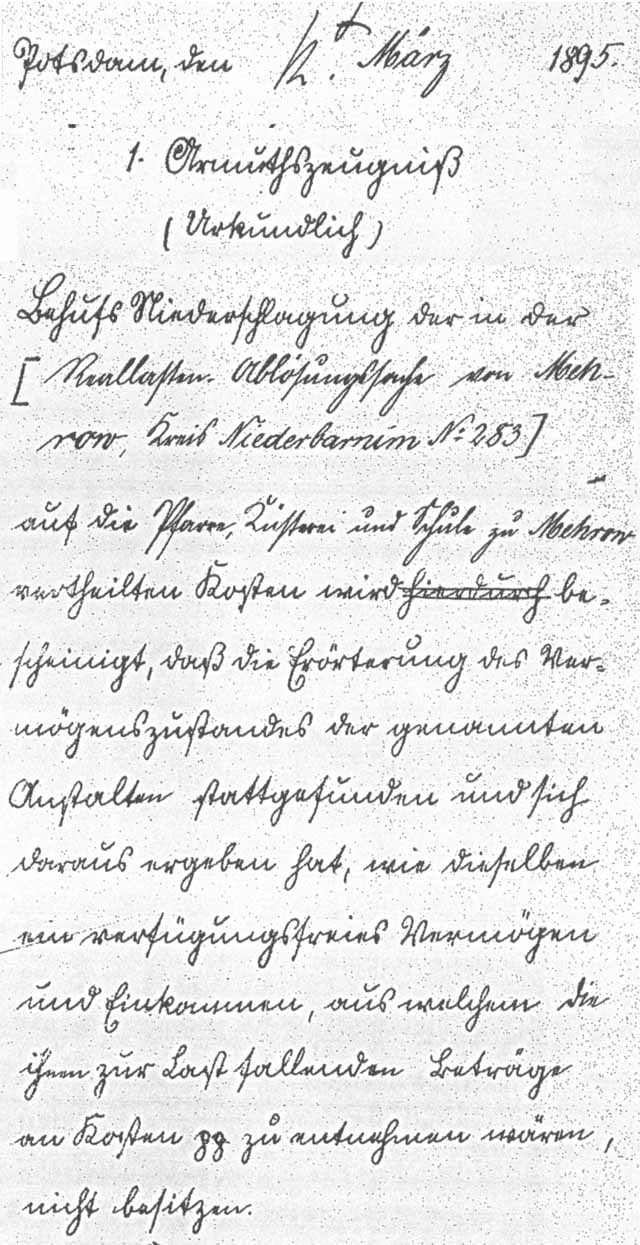 Potsdam, den 12. März 1895.
1. Armuthszeugniß
(Urkundlich)
Behufs Niederschlagung der in der
[Reallasten-Ablösungssache von Meh-
row, Kreis Niederbarnim No 283]
auf die Pfarre, Küsterei und Schule zu Mehrow
vertheilten Kosten wird hierdurch be-
scheinigt, daß die Erörterung des Ver-
mögenszustandes der genannten
Anstalten stattgefunden und sich
daraus ergeben hat, wie dieselben
ein verfügungsfreies Vermögen
und Einkommen, aus welchem die
ihnen zur Last fallenden Beträge
an Kosten pp zu entnehmen wären,
nicht besitzen.